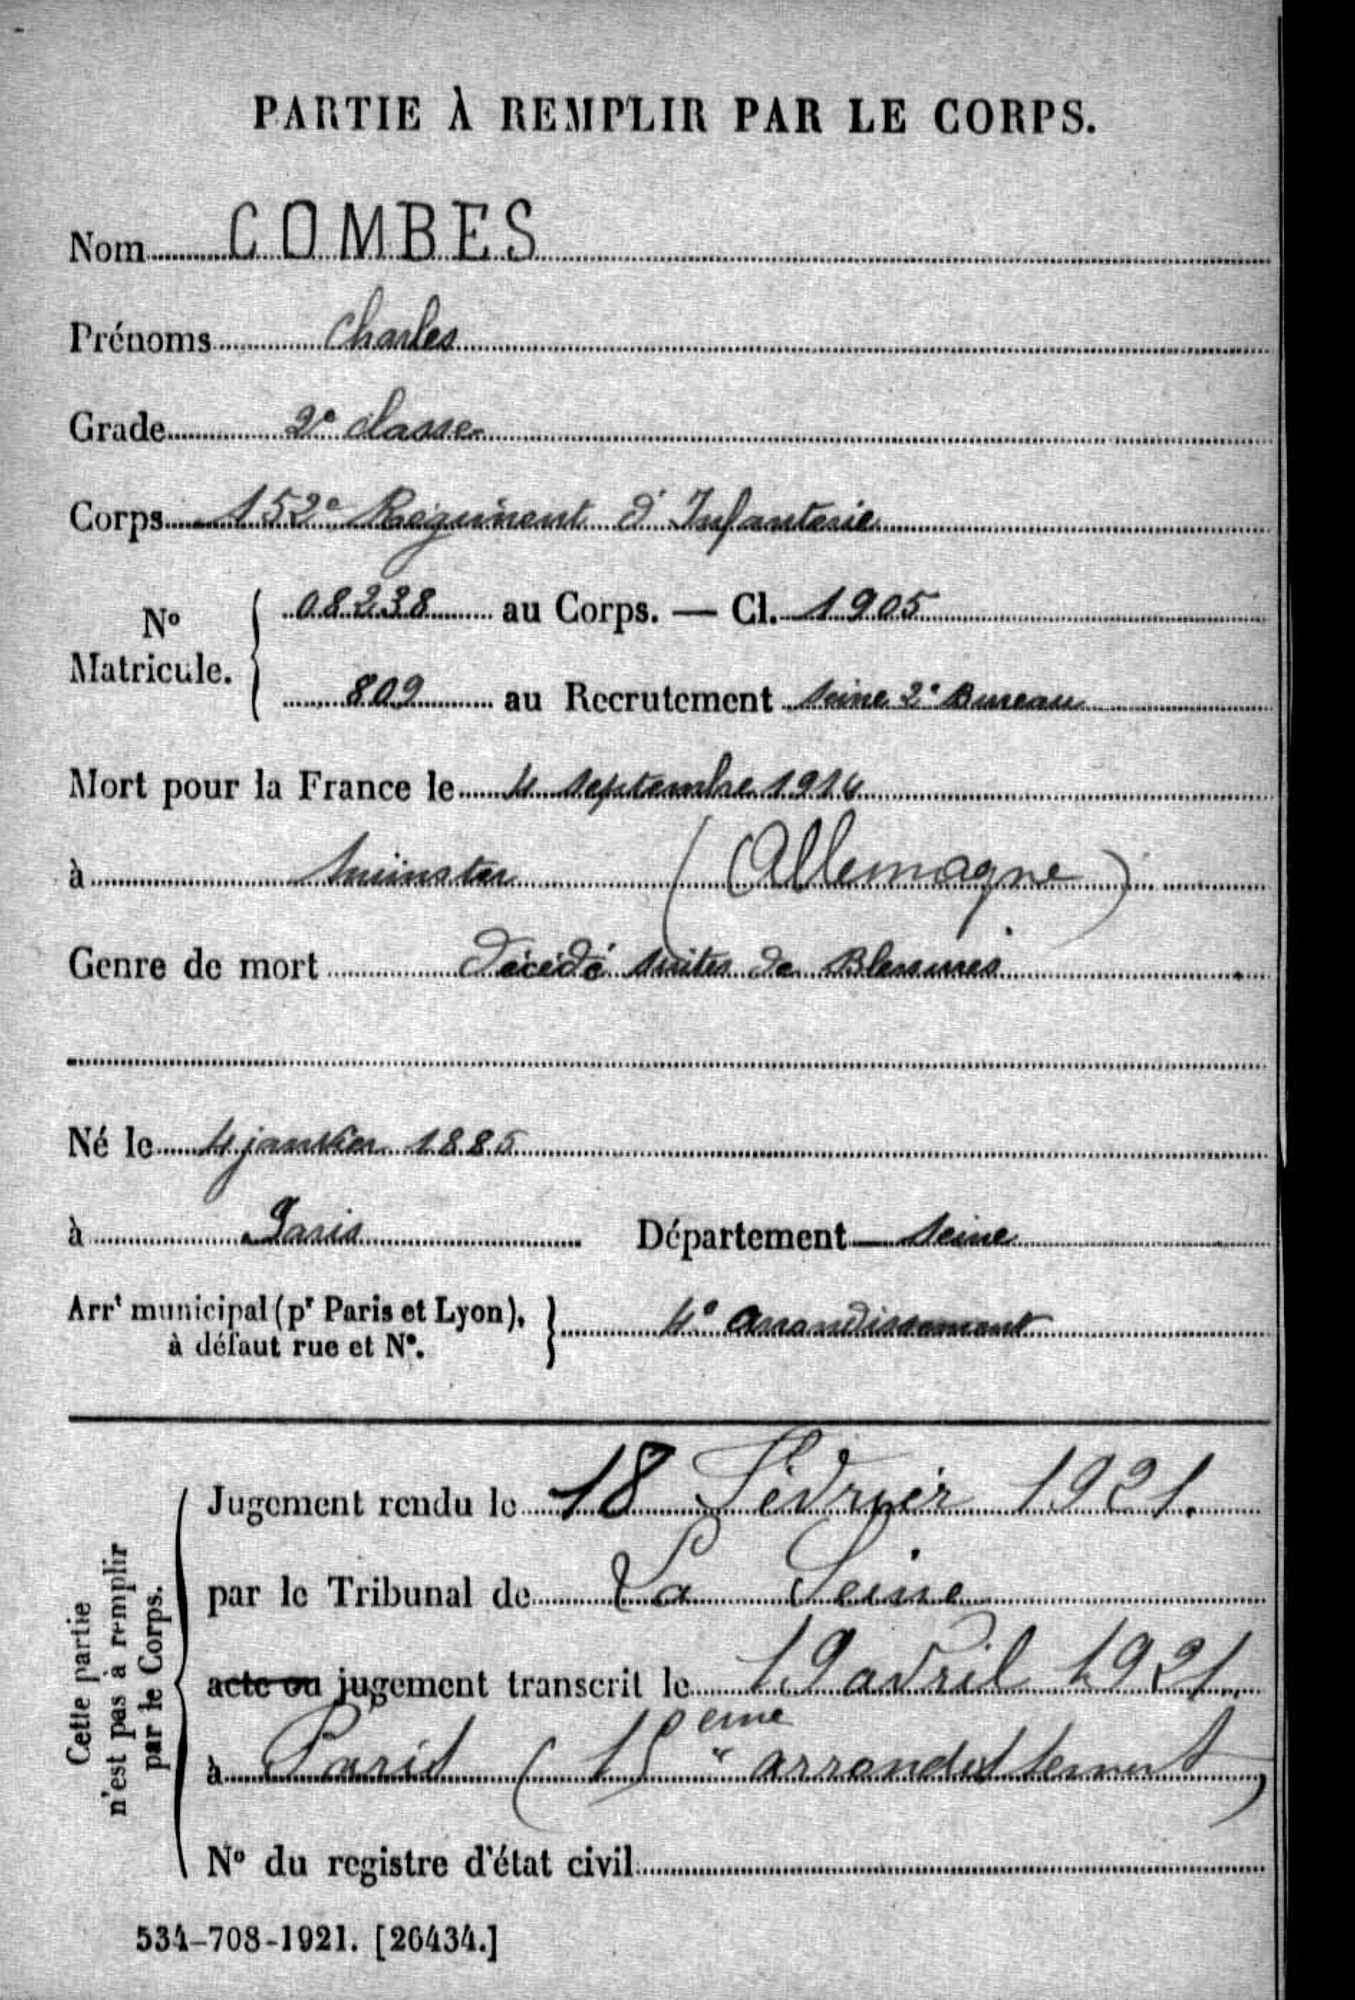 PARTIE À REMPLIR PAR LE CORPS.
Nom COMBES
Prénoms Charles
Grade 2e classe
Corps 152e Régiment d'Infanterie
No Matricule. 08238 au Corps. — Cl. 1905
809 au Recrutement Seine 2e Bureau
Mort pour la France le 4 septembre 1914
à Munster (Allemagne)
Genre de mort Décédé suites de Blessures
Né le 4 janvier 1885
à Paris Département Seine
Arrt municipal (pr Paris et Lyon), à défaut rue et No. 4e arrondissement
Cette partie n'est pas à remplir par le Corps.
Jugement rendu le 18 Février 1921.
par le Tribunal de La Seine
acte ou jugement transcrit le 19 avril 1921.
à Paris (15eme arrondissement)
No du registre d'état civil
534-708-1921. [26434.]